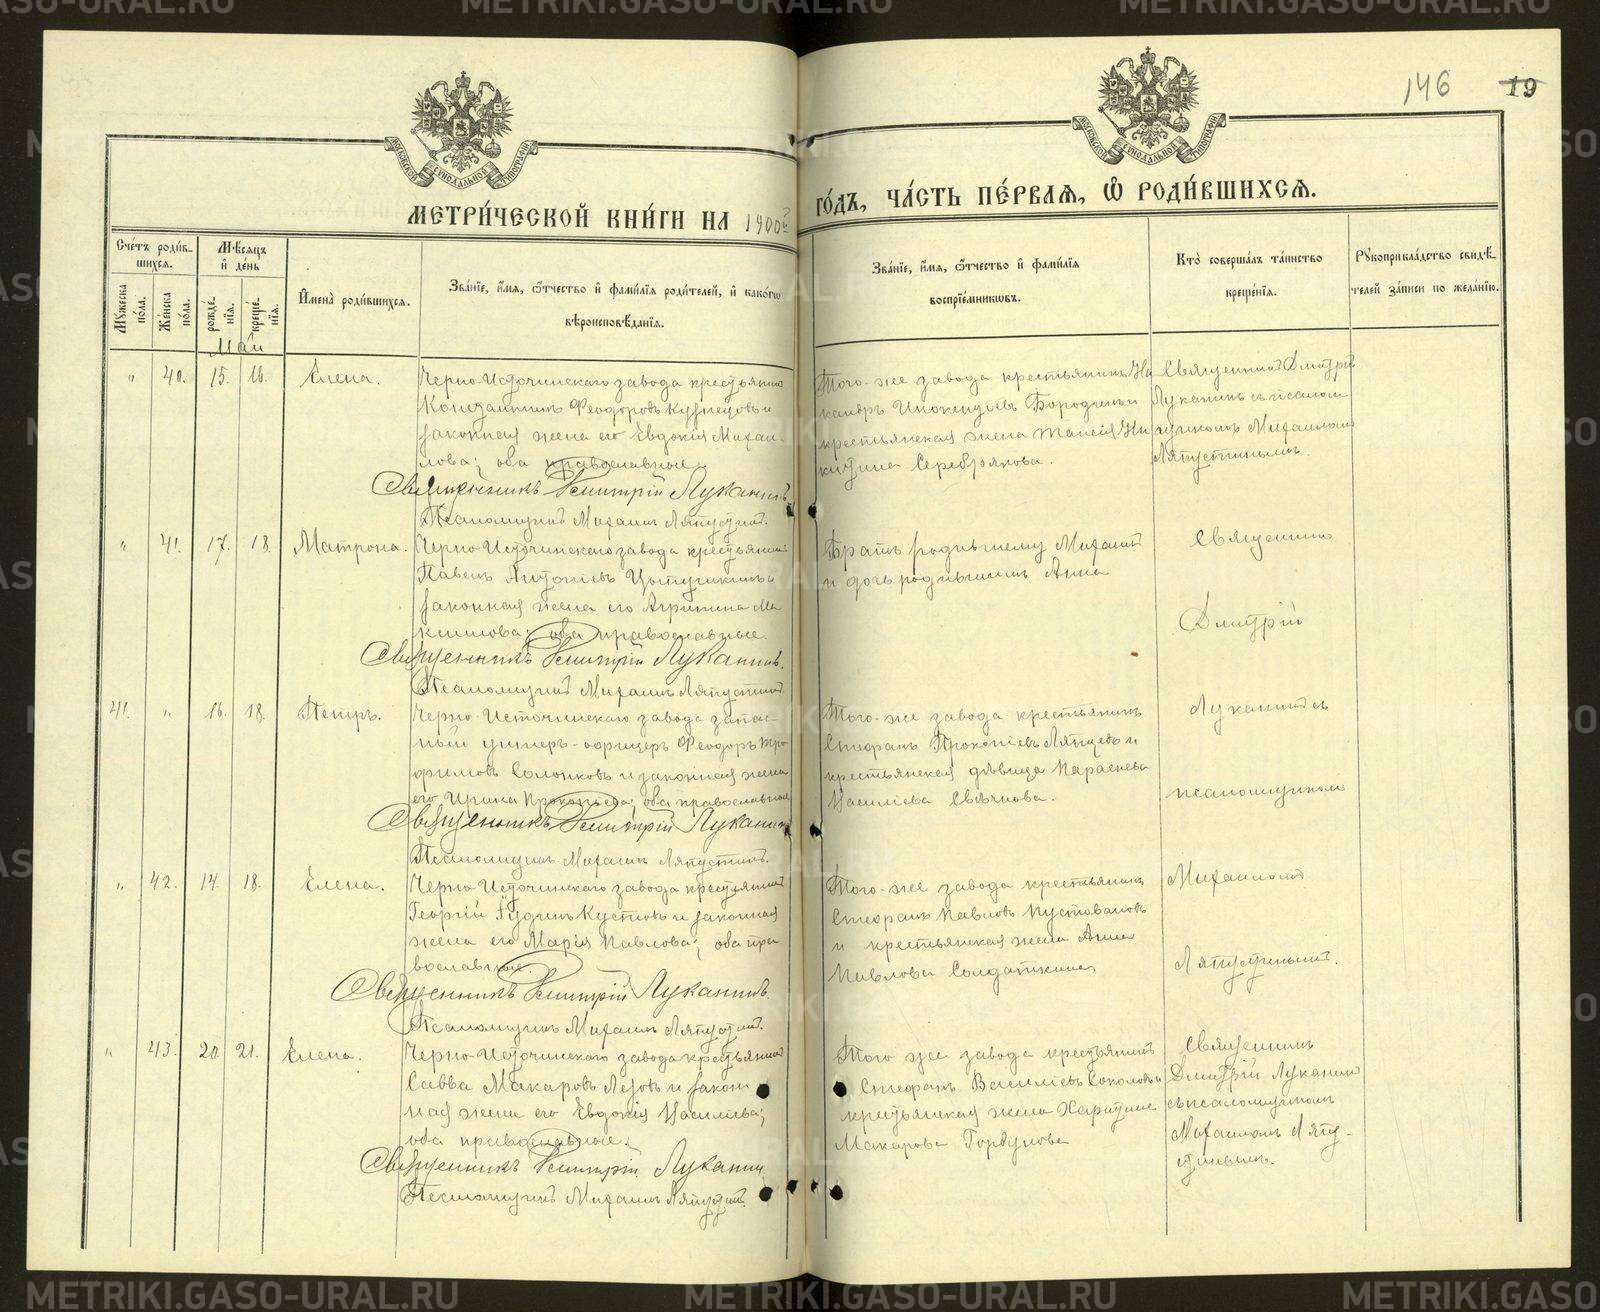 146 19
МОСКОВСКОЙ СѴНОДАЛЬНОЙ ТИПОГРАФІИ
МОСКОВСКОЙ СѴНОДАЛЬНОЙ ТИПОГРАФІИ
МЕТРИ́ЧЕСКОЙ КНИ́ГИ НА 1900й ГО́ДЪ, ЧА́СТЬ ПЕ́РВАЯ, Ѽ РОДИ́ВШИХСЯ.
Сче́тъ роди́в-
шихся.
Му́жеска по́ла.
Же́нска по́ла.
Мѣ́сяцъ
и҆ де́нь
рожде́нїя.
креще́нїя.
И҆мена̀ роди́вшихся.
Зва́нїе, и҆́мя, ѻ҆́тчество и҆ фами́лїя роди́телей, и҆ како́гѡ
вѣроисповѣ́данїя.
Зва́нїе, и҆́мя, ѻ҆́тчество и҆ фами́лїя
воспрїе́мникѡвъ.
Кто̀ соверша́лъ та́инство
креще́нїя.
Рꙋкоприкла́дство свидѣ́-
телей за́писи по жела́нїю.
Май
" 40. 15. 16. Елена.
Черно-Источинскаго завода крестьянинъ
Феодоровъ Кузнецовъ и
законная жена его Евдокія Михаи-
лова; оба православные.
Священникъ Димитрій Луканинъ
Псаломщикъ Михаилъ Ляпустинъ.
Того-же завода крестьянинъ Ни
Бородинъ и
крестьянская жена Ни
китина Серебрякова.
Священникъ Дмитрій
Луканинъ съ псалом
щикомъ Михаиломъ
Ляпустинымъ.
" 41. 17. 18. Матрона.
Черно-Источинскаго завода крестьянинъ
Павелъ Антоніевъ
законная жена его Агрипина Ма
ксимова; оба православные.
Священникъ Димитрій Луканинъ.
Псаломщикъ Михаилъ Ляпустинъ
Братъ родившему Михаилъ
и дочь родившимъ Анна
Священникъ
Дмитрій
41. " 16. 18. Петръ.
Черно-Источинскаго завода запас-
ный унтеръ-офицеръ Феодоръ Тро
фимовъ Солонковъ и законная жена
его Ирина Прокопіева; оба православные
Священникъ Димитрій Луканинъ
Псаломщикъ Михаилъ Ляпустинъ.
Того-же завода крестьянинъ
Стефанъ Прокопіевъ Ляпцевъ и
крестьянская дѣвица Параскева
Василіева Свѣчкова.
Луканинъ съ
псаломщикомъ
" 42. 14. 18. Елена.
Черно-Источинскаго завода крестьянинъ
Георгій Гудинъ Кустовъ и законная
жена его Марія Павлова; оба пра
вославные.
Священникъ Димитрій Луканинъ
Псаломщикъ Михаилъ Ляпустинъ.
Того-же завода крестьянинъ
Стефанъ Павловъ Пустоваловъ
и крестьянская жена Анна
Павлова Солдаткина
Михаиломъ
Ляпустинымъ.
" 43. 20. 21. Елена.
Черно-Источинскаго завода крестьянинъ
Савва Макаровъ Лезовъ и закон
ная жена его Евдокія Василіева;
оба православные.
Священникъ Димитрій Луканинъ
Псаломщикъ Михаилъ Ляпустинъ.
Того же завода крестьянинъ
Стефанъ Василіевъ Соколовъ и
крестьянская жена Харитина
Макарова Горбунова
Священникъ
Дмитрій Луканинъ
съ псаломщикомъ
Михаиломъ Ляпу-
стинымъ.
METRIKI.GASO-URAL.RU